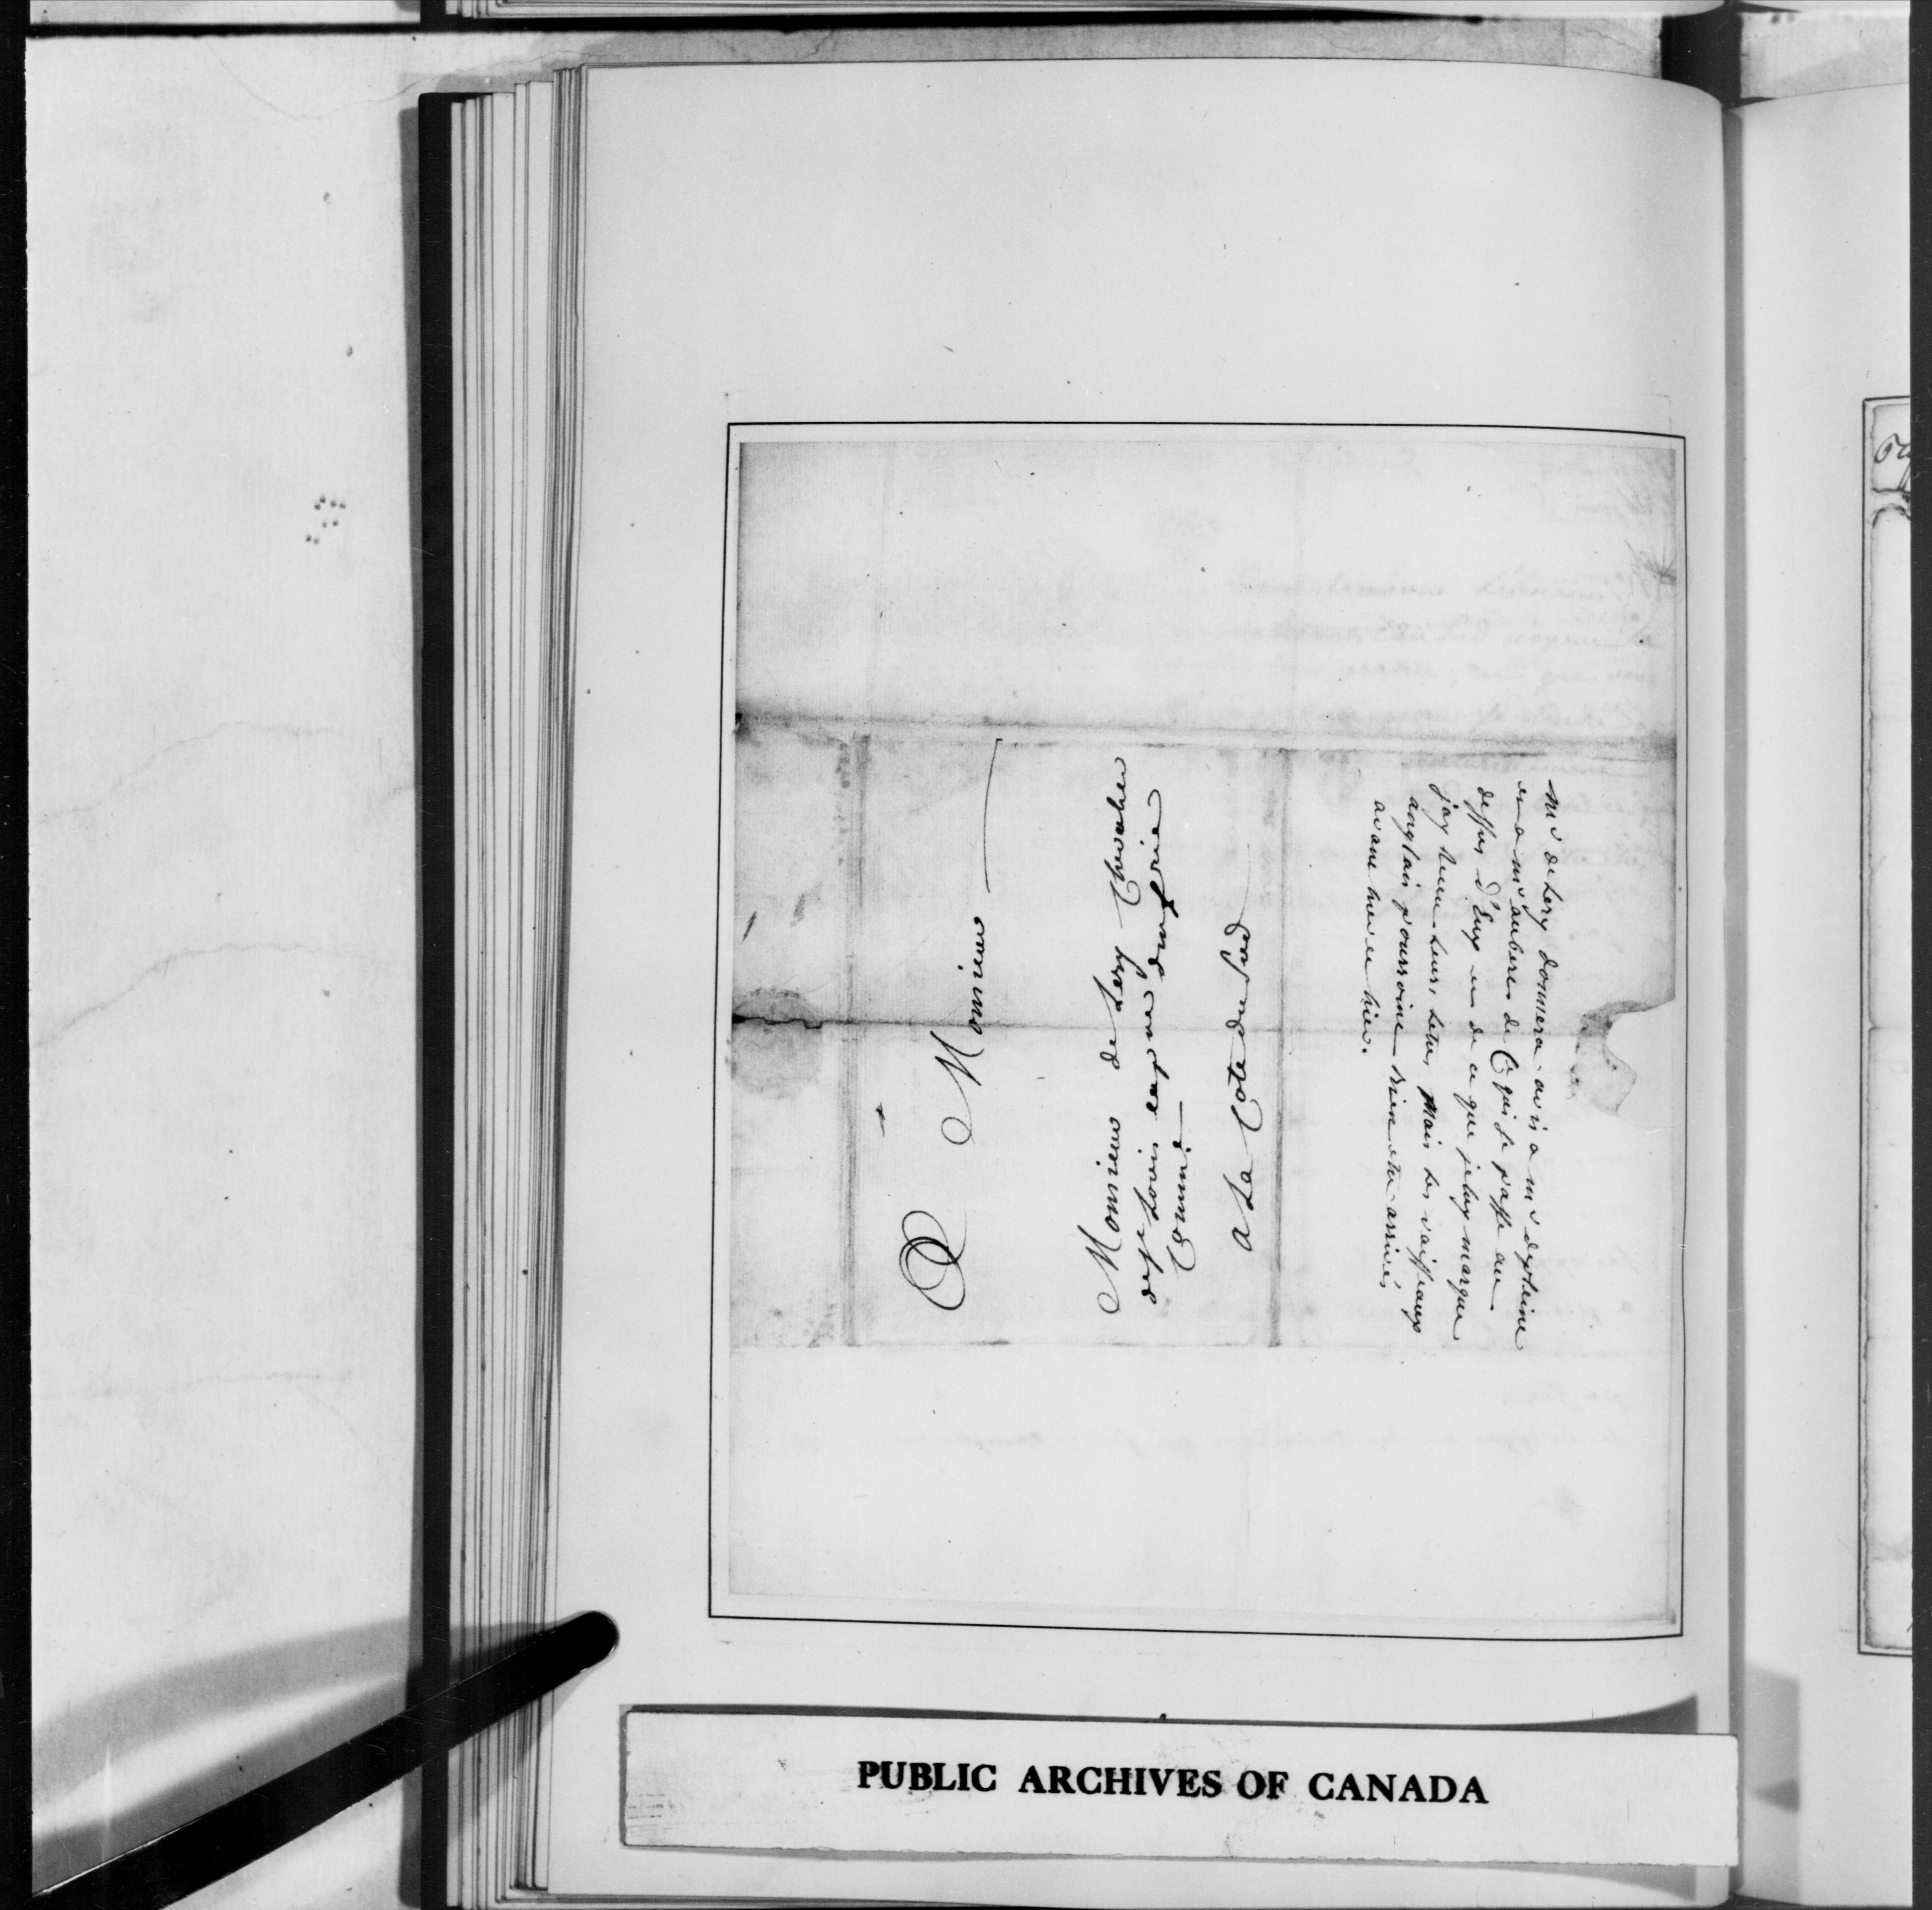 A Monsieur
Monsieur de Lery Chevalier
de st Louis capne d'infanterie
Commdt
a La Cote du Sud
Mr de Lery donnera avis a mr depleine
et a mr aubert de Ce qui se passe au
dessus d'Eux et de ce que je luy marque
j'ay receu leurs lettres Mais les vaisseaux
anglais pourroient bien etre arrivés
avant hier et hier.
PUBLIC ARCHIVES OF CANADA